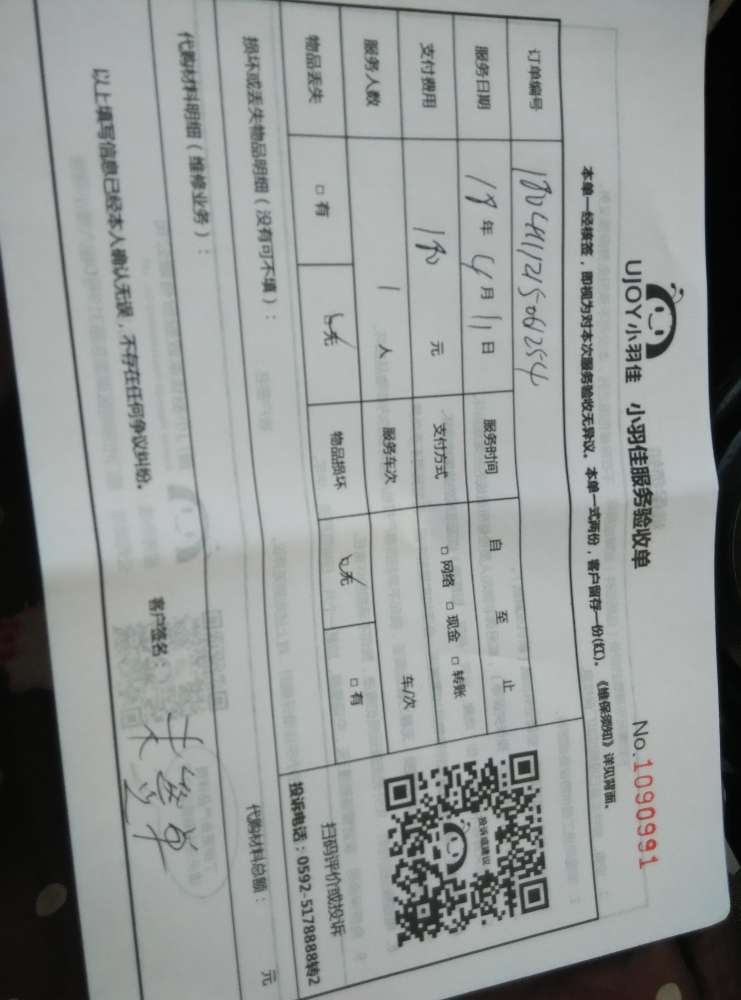 UJOY小羽佳 小羽佳服务验收单
No.1090991
本单一经核签，即视为对本次服务验收无异议。本单一式两份，客户留存一份(红)。《维保须知》详见背面。
订单编号
服务日期 年 4月 11日 服务时间 自 至 止
支付费用 元 支付方式 □网络 □现金 □转账
服务人数 1 人 服务车次 车/次
物品丢失 □有 □无 物品损坏 □无 □有
投诉或建议
扫码评价或投诉
投诉电话：0592-5178888转2
损坏或丢失物品明细（没有可不填）：
代购材料明细（维修业务）： 代购材料总额： 元
以上填写信息已经本人确认无误，不存在任何争议纠纷。 客户签名：